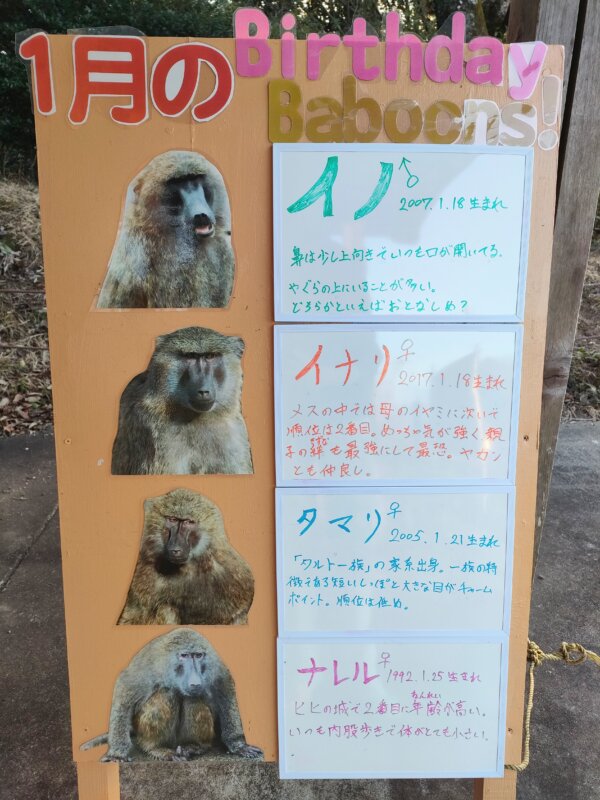 1月の Birthday
Baboons!
イノ♂
2007.1.18生まれ
鼻は少し上向きでいつも口が開いてる。
やぐらの上にいることが多い。
どちらかといえばおとなしめ？
イナリ♀
2017.1.18生まれ
メスの中では母のイヤミに次いで
順位は2番目。めっちゃ気が強く親
子の絆も最強にして最恐。ヤカン
きずな
とも仲良し。
タマリ♀
2005.1.21生まれ
「タルト一族」の家系出身。一族の特
徴である短いしっぽと大きな目がチャーム
ポイント。順位は低め。
ナレル♀
1992.1.25生まれ
ねんれい
ヒヒの城で2番目に年齢が高い。
いつも内股歩きで体がとても小さい。